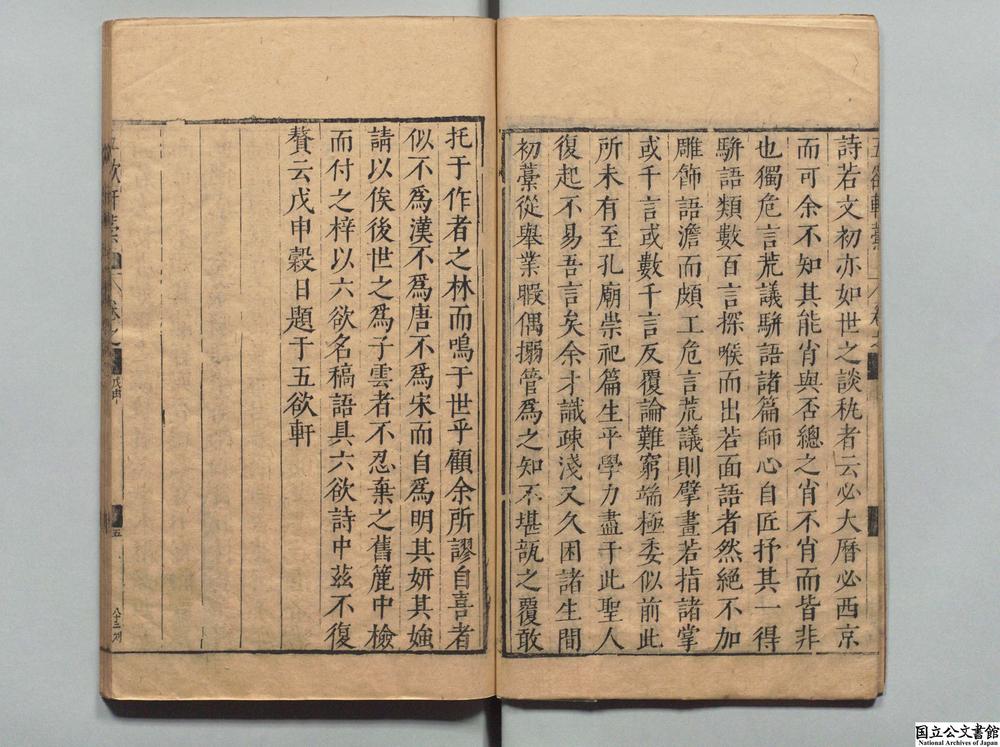 詩若文初亦如世之談秇者云必大曆必西京
而可余不知其能肖與否總之肖不肖而皆非
也獨危言荒議騈語諸篇師心自匠抒其一得
騈語類數百言探喉而出若面語者然絕不加
雕飾語澹而頗工危言荒議則擘畫若指諸掌
或千言或數千言反覆論難窮端極委似前此
所未有至孔廟崇祀篇生平學力盡于此聖人
復起不易吾言矣余才識疎淺又久困諸生間
初藁從舉業暇偶搦管爲之知不堪瓿之覆敢
托于作者之林而鳴于世乎顧余所謬自喜者
似不爲漢不爲唐不爲宋而自爲明其妍其媸
請以俟後世之爲子雲者不忍棄之舊簏中檢
而付之梓以六欲名稿語具六欲詩中茲不復
贅云戊申穀日題于五欲軒
欲軒藁
卷之
戊申
五
八十三
国立公文書館
National Archives of Japan